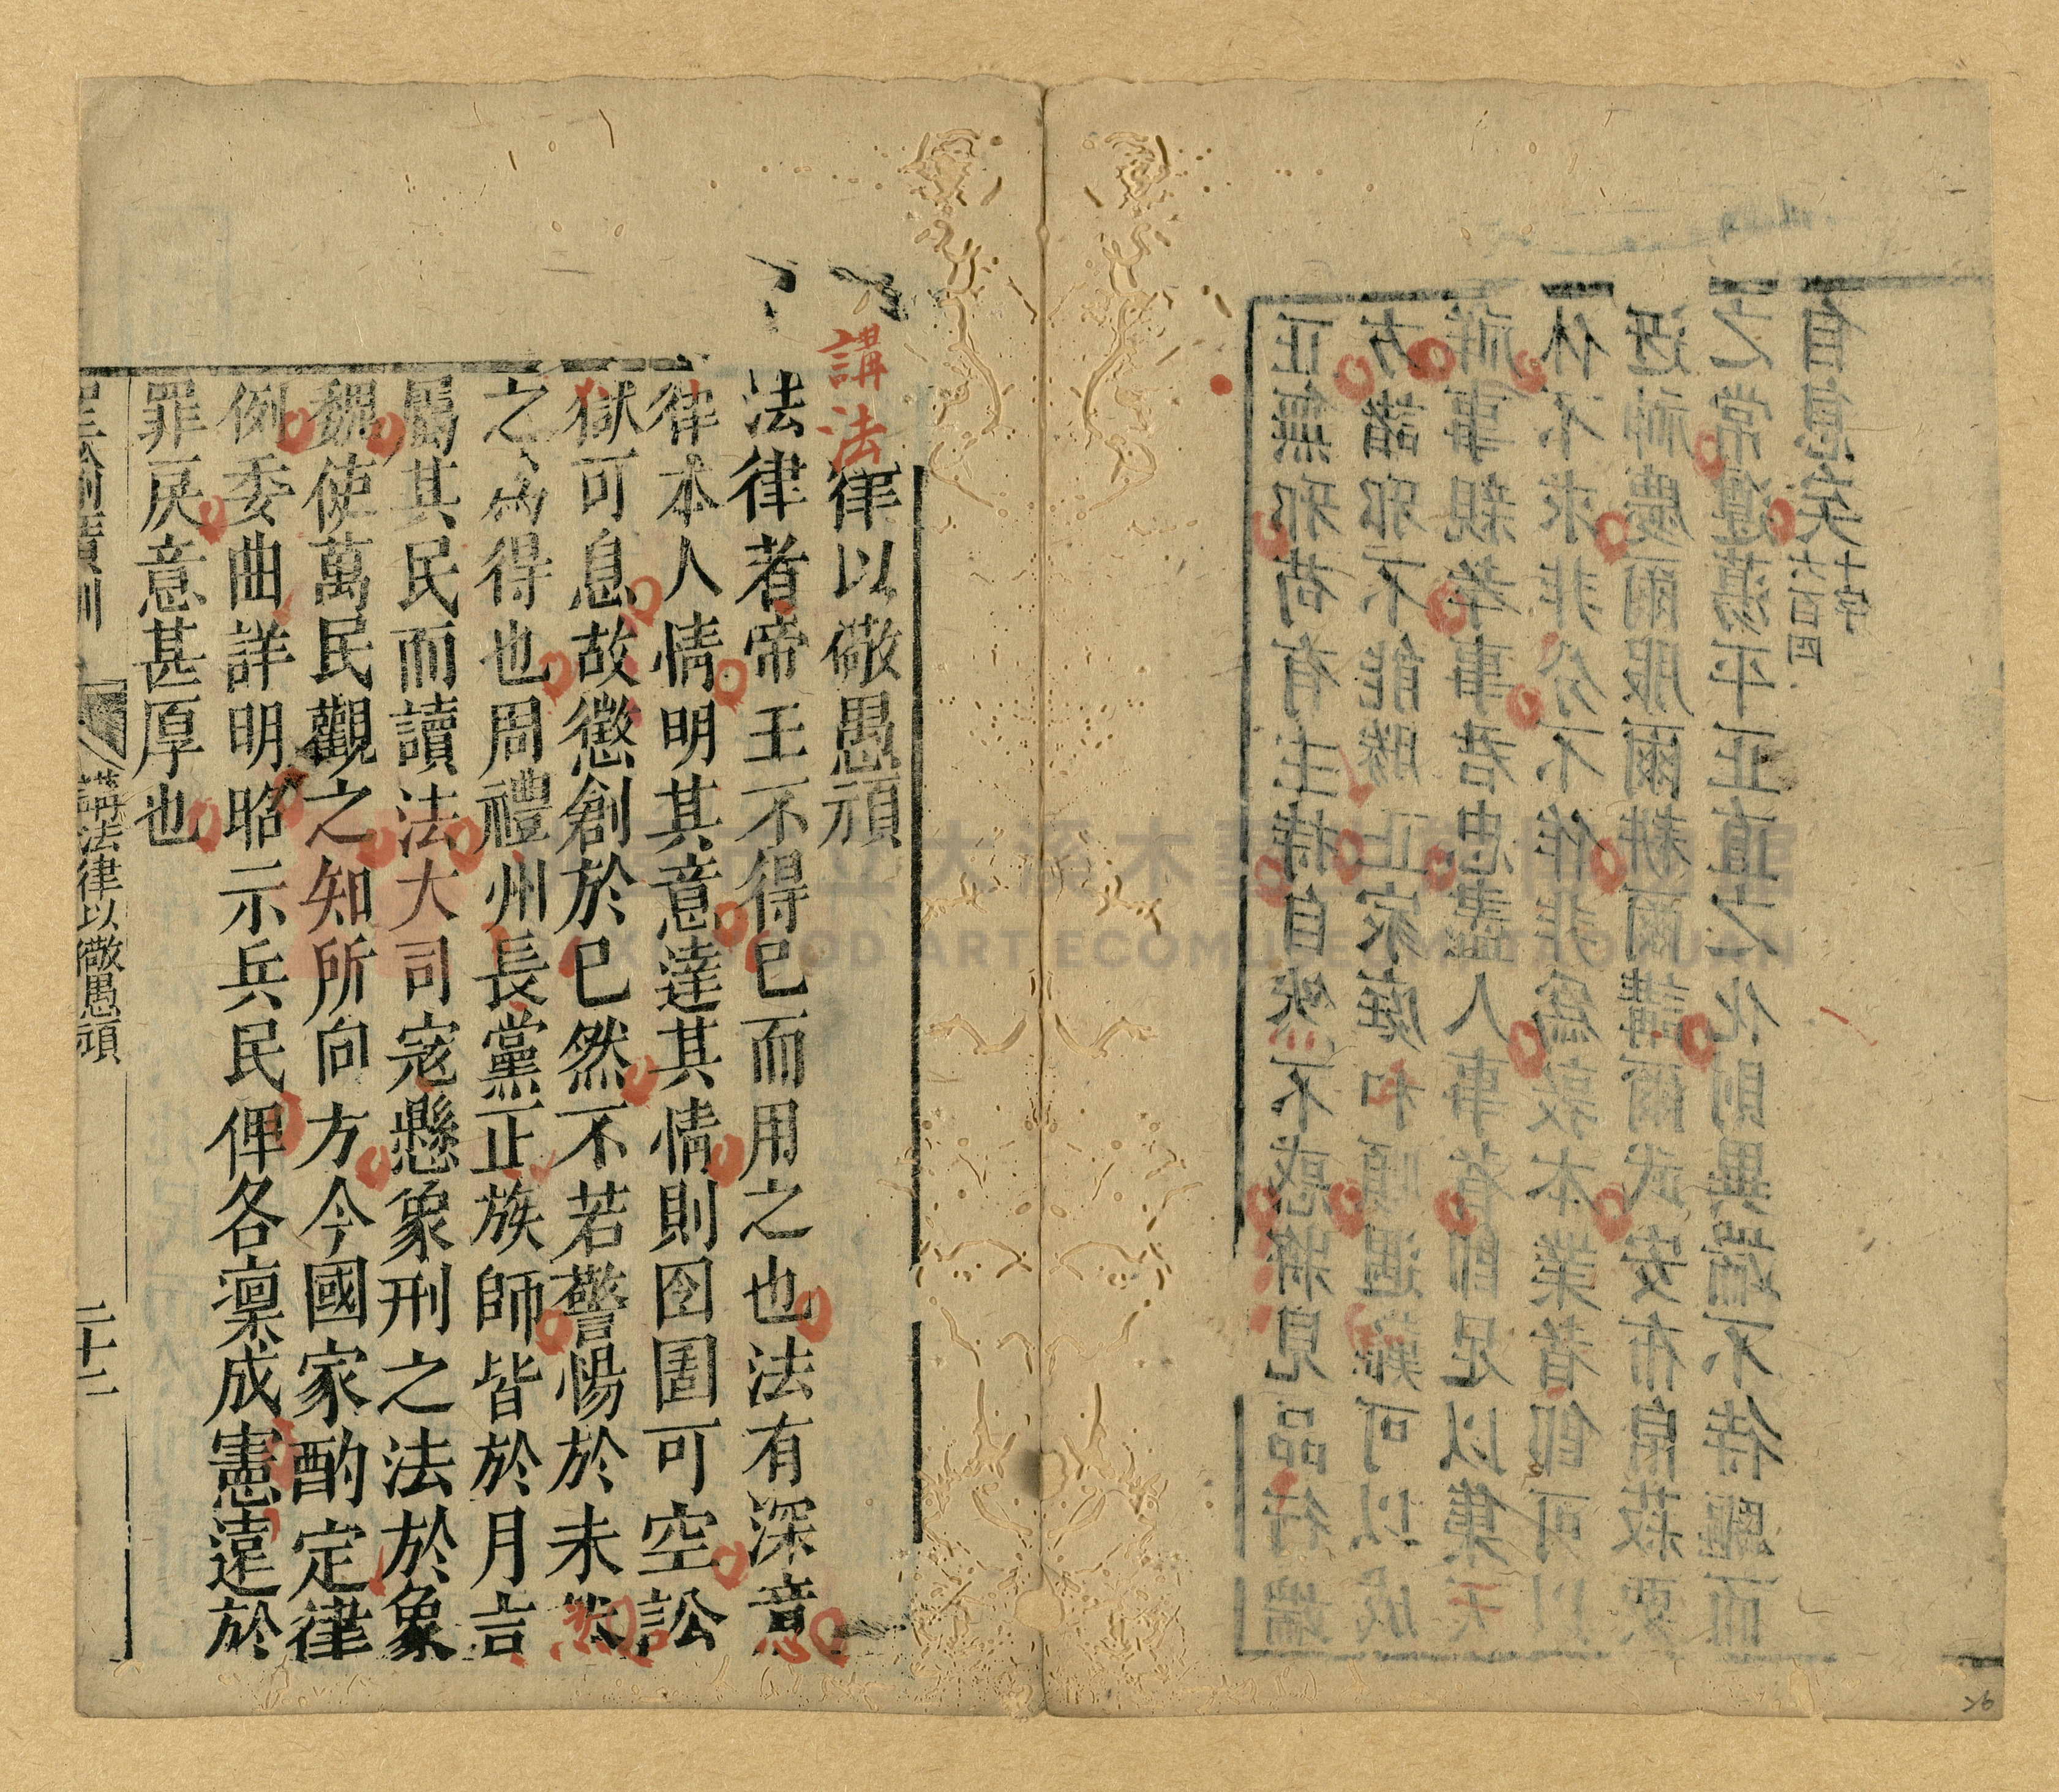 正無邪苟有主持自然不惑將見品行端
方諸邪不能勝正家庭和順遇難可以成
祥事親孝事君忠盡人事者即足以集天
休不求非分不作非爲敦本業者即可以
迓神慶爾服爾耕爾講爾武安布帛菽粟
之常遵蕩平正直之化則異端不待驅而
自息矣六百四十字
講法律以儆愚頑
法律者帝王不得已而用之也法有深意
律本人情明其意達其情則囹圄可空訟
獄可息故懲創於已然不若警惕於未然
之為得也周禮州長黨正族師皆於月吉
屬其民而讀法大司寇懸象刑之法於象
魏使萬民觀之知所向方今國家酌定律
例委曲詳明昭示兵民俾各凜成憲遠於
罪戾意甚厚也
聖諭廣訓 講法律以儆愚頑 二十二
26